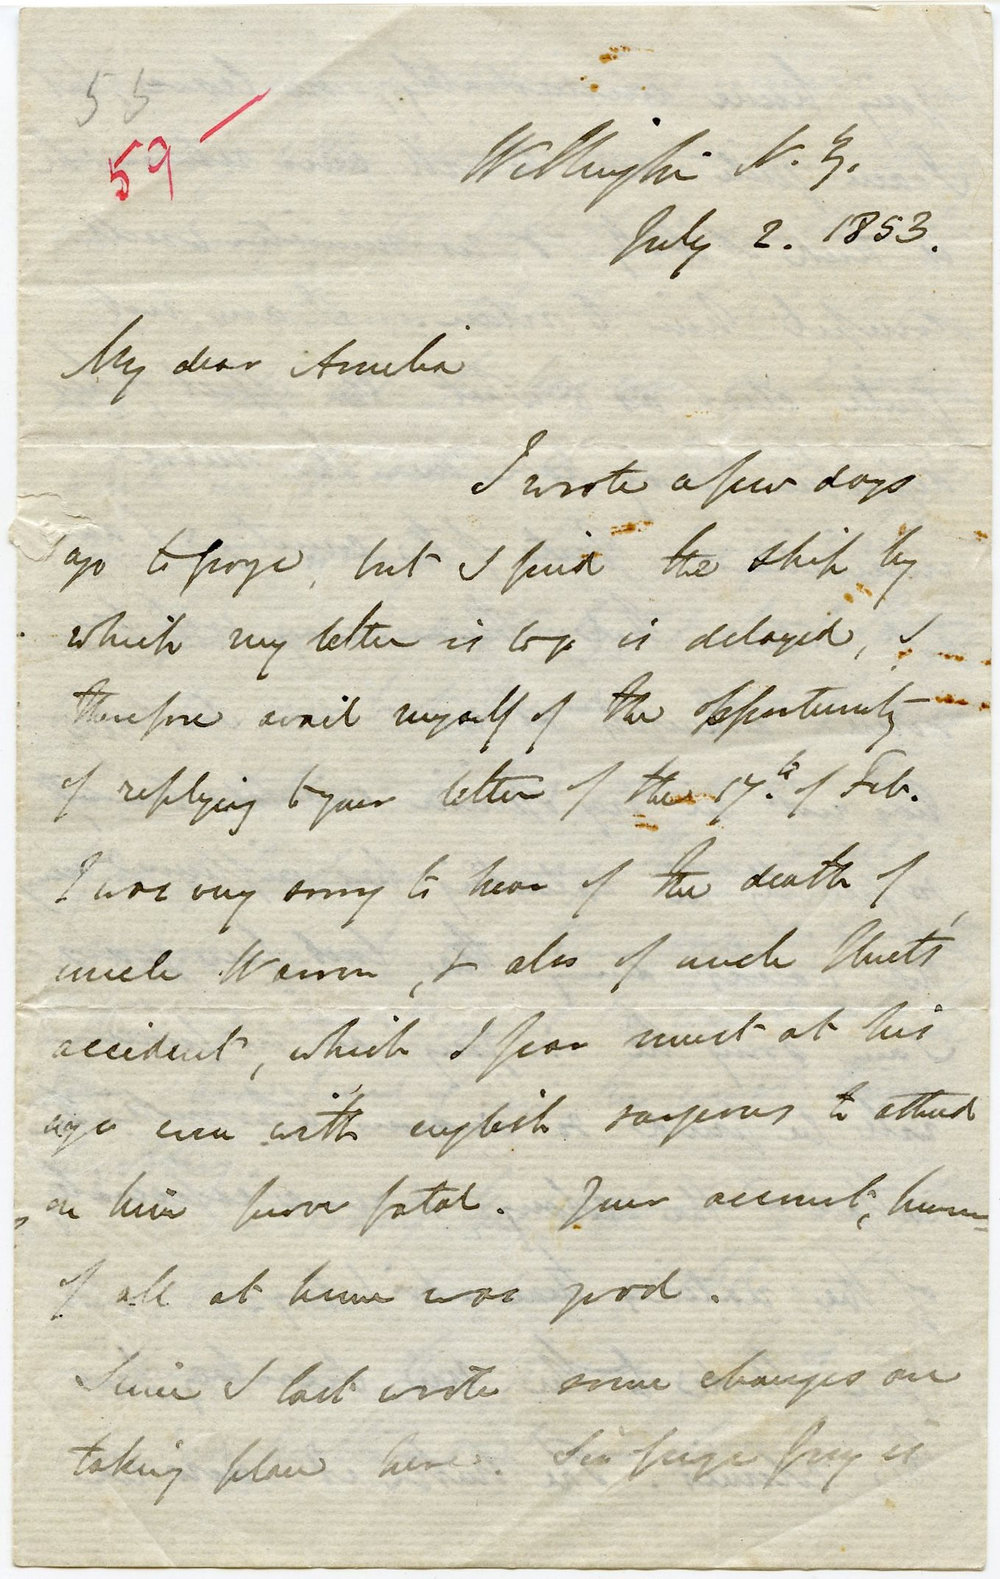 55
59 —
Wellington N.Z.
July 2. 1853.
My dear Amelia
I wrote a few days
ago to but I find the ship by
which my letter is to go is delayed, I
therefore avail myself of the opportunity
of replying to your letter of the 17th. of Feb.
I was very sorry to hear of the death of
uncle Warren, & also of uncle
accident, which I fear must at his
age even with english surgeons to attend
on him prove fatal. Your account, however
of all at home was good.
Since I last wrote some changes are
taking place here. Sir George Grey is